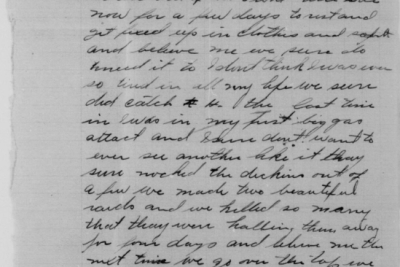 now for a few days to rest and
git fixed up in clothes and
and believe me we sure do
kneed it to I dont think I was ever
so tired in all my life we sure
did catch it the last time
in I was in my first big gas
attact and I sure dont want to
ever see another like it thay
sure nocked the dickins out of
a few we made two beautiful
raids and we killed so many
that thay were halling them away
for four days and beleve me the
next time we go over the top we